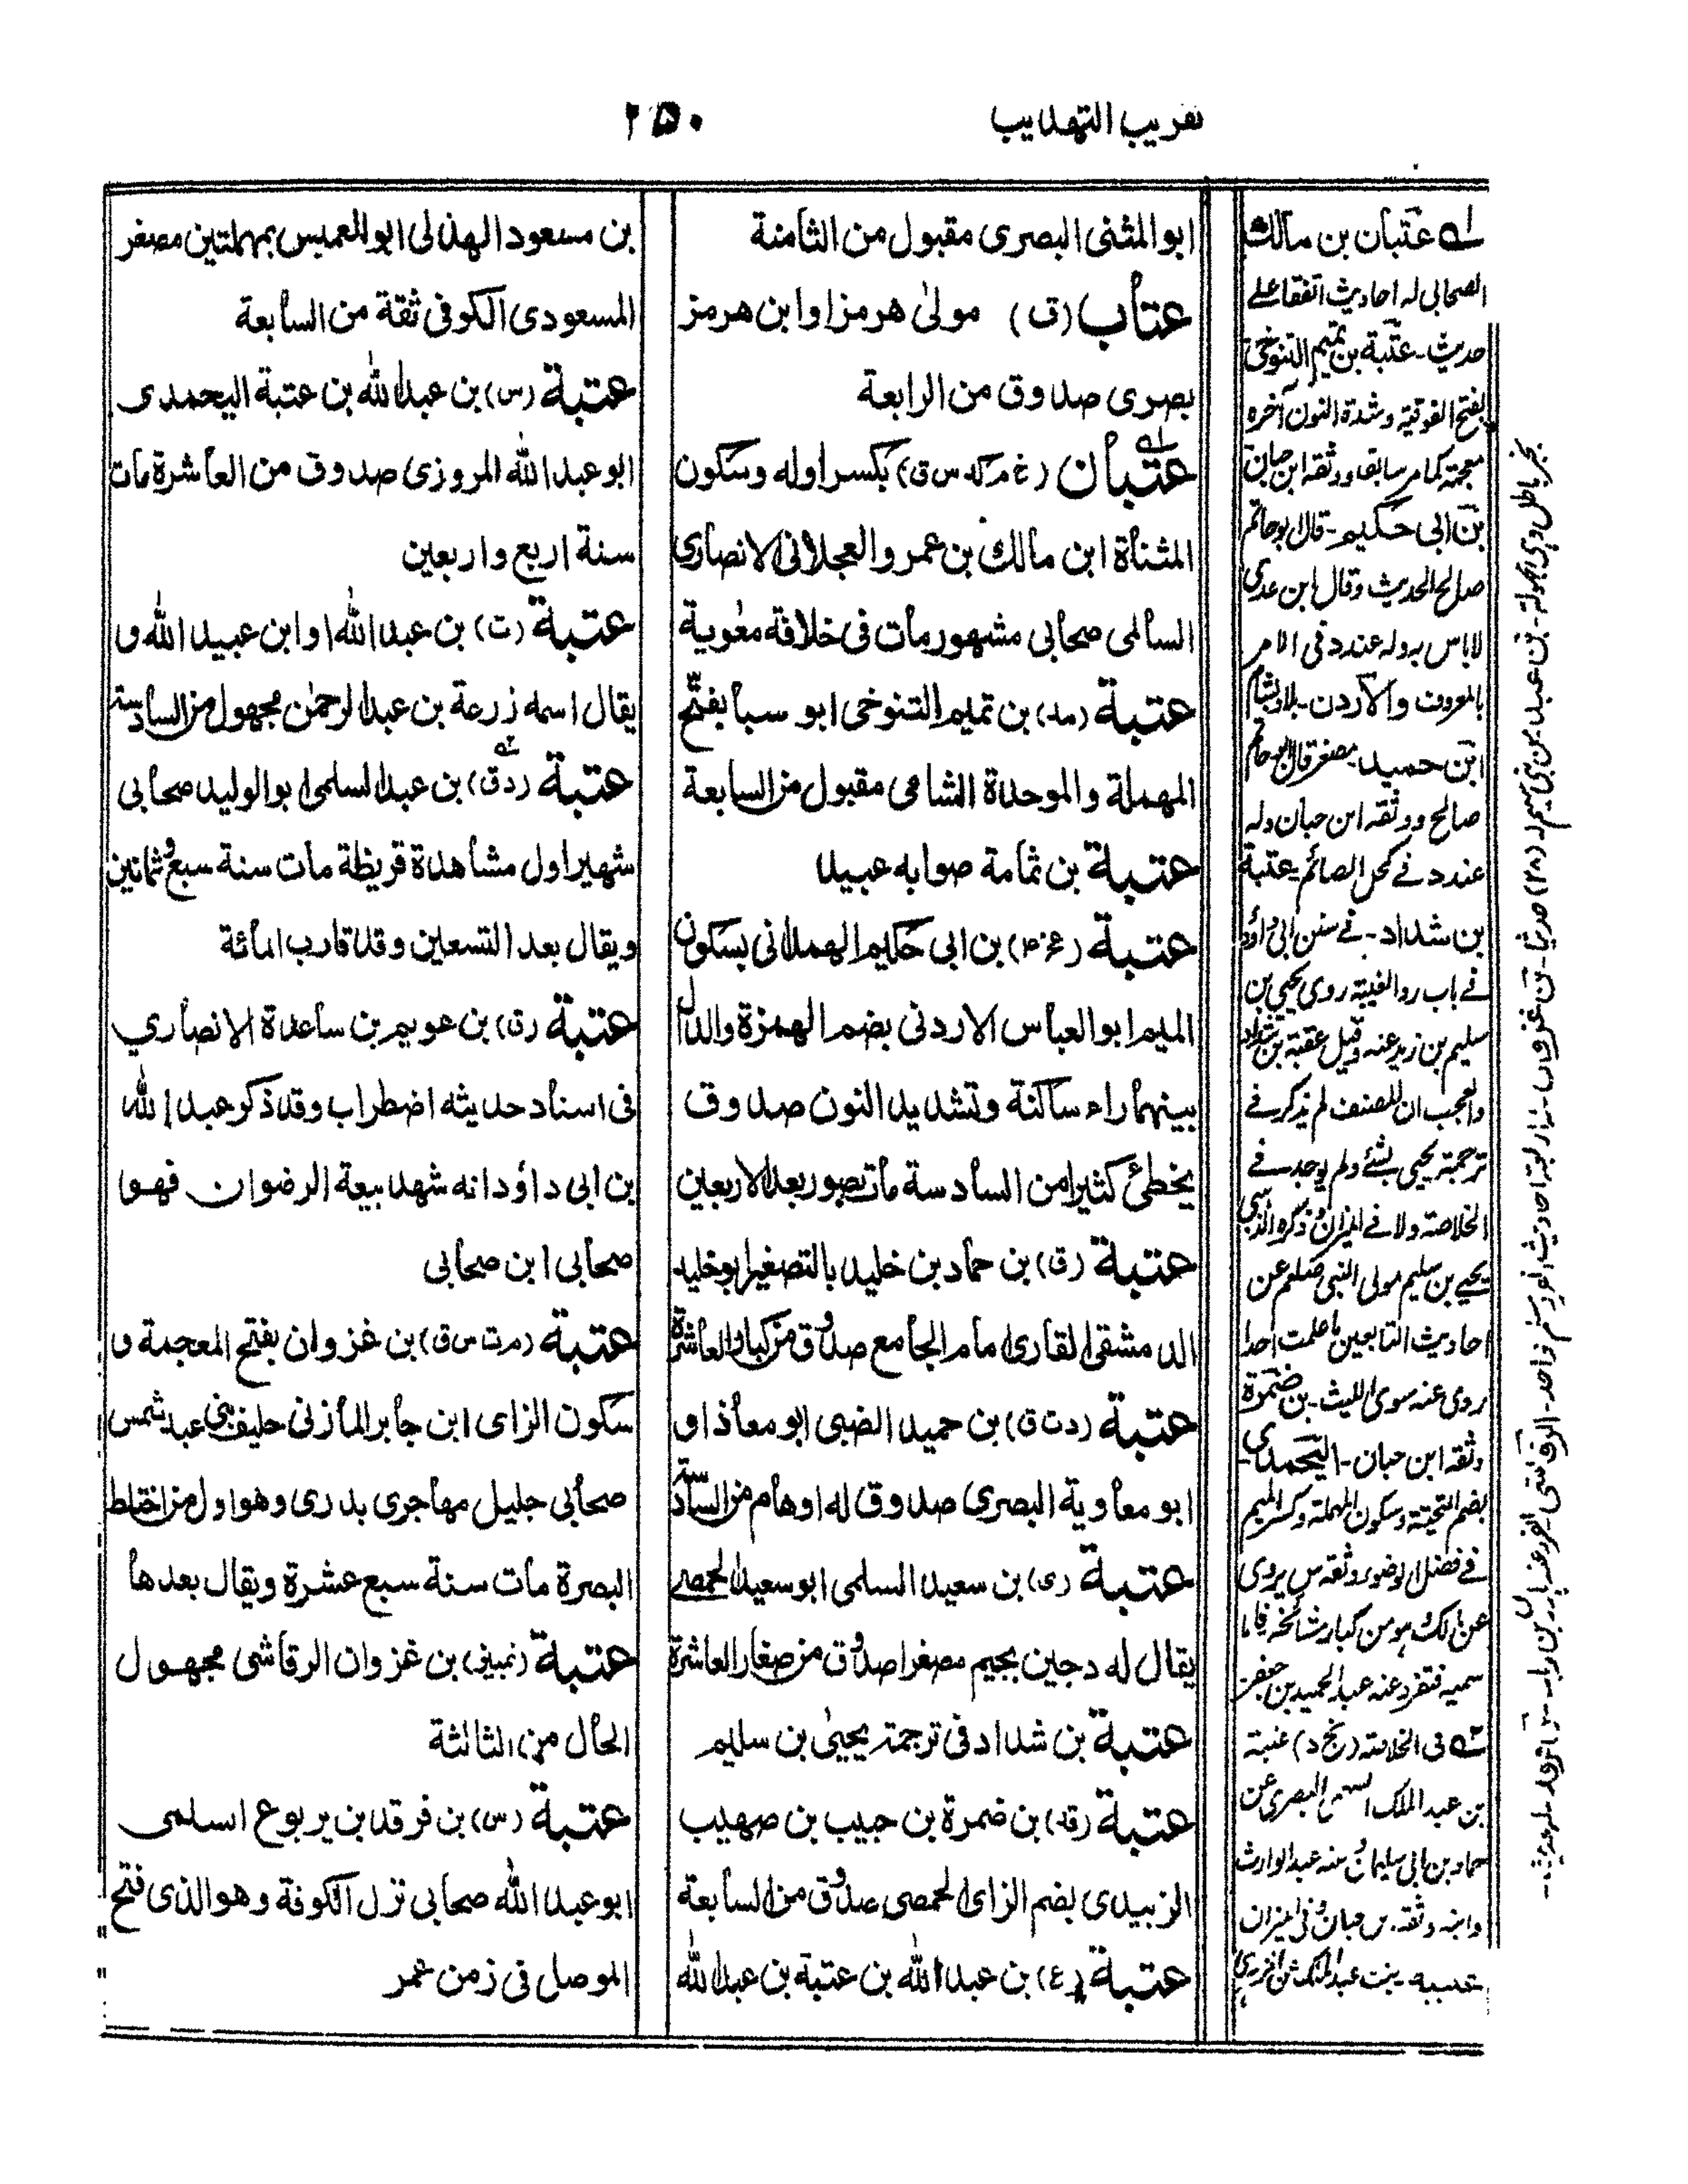 تقريب التهذيب
۲۵۰
ابوالمثنى البصرى مقبول من الثامنة
عتاب (ق) مولىٰ هرمز اوابن هرمز
بصرى صدوق من الرابعة
عتبان (خ م كد س ق) بكسر اوله وسكون
المثناة ابن مالك بن عمرو العجلانى الانصارى
السالمى صحابى مشهور مات فى خلافة معٰوية
عتبة (مد) بن تميم التنوخى ابو سبا بفتح
المهملة والموحدة الشامى مقبول من السابعة
عتبة بن ثمامة صوابه عبيد
عتبة (عخ ۴) بن ابى حكيم الهمدانى بسكون
الميم ابوالعباس الاردنى بضم الهمزة والدال
بينهما راء ساكنة وتشديد النون صدوق
يخطئ كثيرا من السادسة مات بصور بعد الاربعين
عتبة (ق) بن حماد بن خليد بالتصغير ابوخليد
الدمشقى القارى امام الجامع صدوق من كبار العاشرة
عتبة (د ت ق) بن حميد الضبى ابو معاذ او
ابو معاوية البصرى صدوق له اوهام من السادسة
عتبة (ى) بن سعيد السلمى ابو سعيد الحمصى
يقال له دجين بجيم مصغرا صدوق من صغار العاشرة
عتبة بن شداد فى ترجمة يحيىٰ بن سليم
عتبة (قد) بن ضمرة بن حبيب بن صهيب
الزبيدى بضم الزاى الحمصى صدوق من السابعة
عتبة (ع) بن عبد الله بن عتبة بن عبد الله
بن مسعود الهذلى ابو العميس بمهملتين مصغر
المسعودى الكوفى ثقة من السابعة
عتبة (س) بن عبد الله بن عتبة اليحمدى
ابو عبد الله المروزى صدوق من العاشرة مات
سنة اربع واربعين
عتبة (ت) بن عبد الله او ابن عبيد الله و
يقال اسمه زرعة بن عبد الرحمٰن مجهول من السادسة
عتبة (د ق) بن عبد السلمى ابو الوليد صحابى
شهير اول مشاهدة قريظة مات سنة سبع وثمانين
ويقال بعد التسعين وقد قارب المائة
عتبة (ق) بن عويم بن ساعدة الانصاري
فى اسناد حديثه اضطراب وقد ذكر عبد الله
بن ابى داؤد انه شهد بيعة الرضوان فهو
صحابى ابن صحابى
عتبة (م ت س ق) بن غزوان بفتح المعجمة و
سكون الزاى ابن جابر المازنى حليف بنى عبد شمس
صحابى جليل مهاجرى بدرى وهو اول من اختط
البصرة مات سنة سبع عشرة ويقال بعدها
عتبة (تمييز) بن غزوان الرقاشى مجهول
الحال من الثالثة
عتبة (س) بن فرقد بن يربوع اسلمى
ابو عبد الله صحابى نزل الكوفة وهو الذى فتح
الموصل فى زمن عمر
عتبان بن مالك
الصحابى له احاديث اتفقا على
حديث - عتبة بن تميم التنوخى
بفتح الفوقية وشدة النون آخره
معجمة كما مر سابقا ووثقه ابن حبان
بن ابى حكيم - قال ابو حاتم
صالح الحديث وقال ابن عدى
لاباس به وله عندد فى الامر
بالمعروف والاردن - بلاد بشام
ابن حميد مصغر قال ابو حاتم
صالح ووثقه ابن حبان وله
عندد فى كحل الصائم - عتبة
بن شداد - فى سنن ابى داؤد
فى باب رد الغيبة روى يحيى بن
سليم بن زيد عنه وقيل عقبة بن شداد
والعجب ان المصنف لم يذكر فى
ترجمة يحيى بشئ ولم يوجد فى
الخلاصة ولا فى الميزان وذكره الذهبى
يحيى بن سليم مولى النبى صلعم عن
احاديث التابعين ما علمت احدا
روى عنه سوى الليث - بن ضمرة
وثقه ابن حبان - اليحمدى -
بضم التحتية وسكون المهملة وكسر الميم
فى فضل الوضوء وثقه س يروى
عن مالك وهو من كبار مشائخه فاما
سميه فتفرد عنه عبد الحميد بن جعفر
فى الخلاصة (بخ د) عتبة
بن عبد الملك السهمى البصرى عن
حماد بن ابى سليمان وعنه عبد الوارث
وابنه وثقه ابن حبان وفى الميزان
بنت عبد الملك عن الزهرى